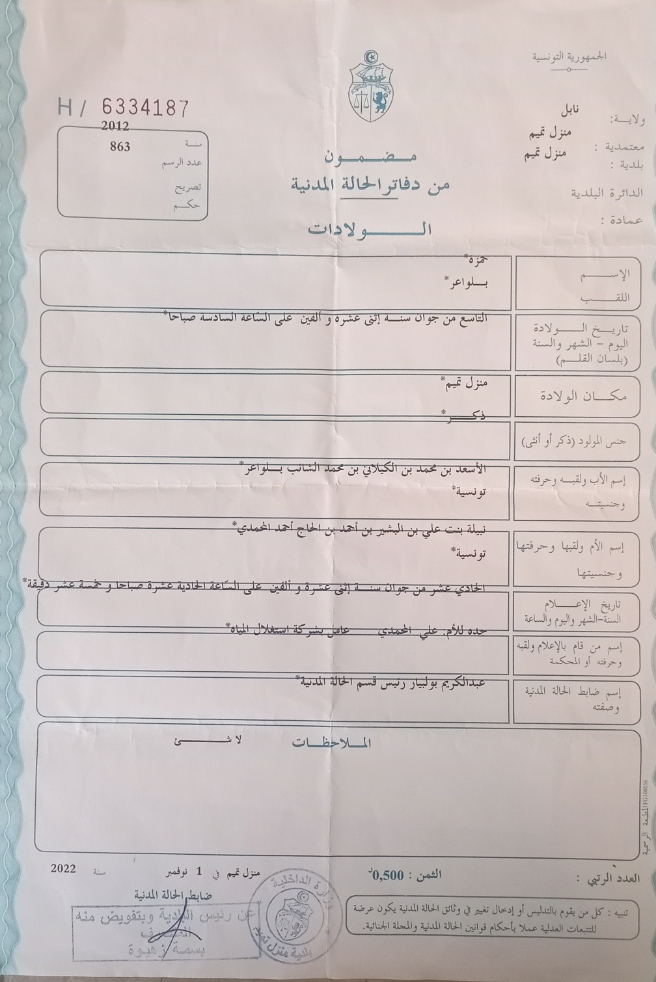 الجمهورية التونسية
ولاية: نابل
معتمدية : منزل تميم
بلدية : منزل تميم
الدائرة البلدية
عمادة :
H / 6334187
سنة 2012
عدد الرسم 863
تصريح
حكم
مضمون
من دفاتر الحالة المدنية
الولادات
الإسم حمزة*
اللقب بلواعر*
تاريخ الولادة
اليوم – الشهر والسنة
(بلسان القلم)
التاسع من جوان سنة إثنى عشرة و ألفين على الساعة السادسة صباحا*
مكان الولادة منزل تميم*
جنس المولود (ذكر أو أنثى) ذكر*
إسم الأب ولقبه وحرفته
وجنسيته
الأسعد بن محمد بن الكيلاني بن محمد الشائب بلواعر*
تونسية*
إسم الأم ولقبها وحرفتها
وجنسيتها
نبيلة بنت علي بن البشير بن أحمد بن الحاج أحمد المحمدي*
تونسية*
تاريخ الإعلام
السنة-الشهر واليوم والساعة
الحادي عشر من جوان سنة إثنى عشرة و ألفين على الساعة الحادية عشرة صباحا و خمسة عشر دقيقة*
إسم من قام بالإعلام ولقبه
وحرفته أو المحكمة
جده للأم. علي المحمدي عامل بشركة استغلال المياه*
إسم ضابط الحالة المدنية
وصفته
عبدالكريم بولبيار رئيس قسم الحالة المدنية*
الملاحظات
لا شئ
العدد الرتبي :
الثمن : 0,500
منزل تميم في 1 نوفمبر سنة 2022
ضابط الحالة المدنية
عن رئيس البلدية وبتفويض منه
بسمة زهيوة
وزارة الداخلية
بلدية منزل تميم
تنبيه : كل من يقوم بالتدليس أو إدخال تغيير في وثائق الحالة المدنية يكون عرضة
للتتبعات العدلية عملا بأحكام قوانين الحالة المدنية والمجلة الجنائية.
المطبعة الرسمية